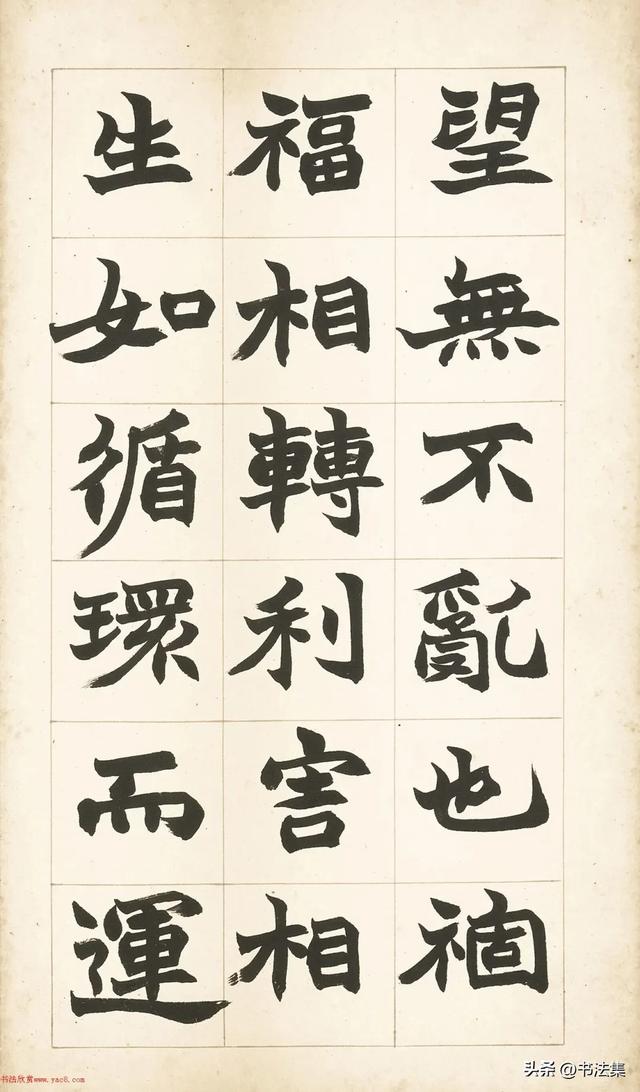 望無不亂也禍
福相轉利害相
生如循環而運
书法欣赏www.yac8.com
头条@书法集